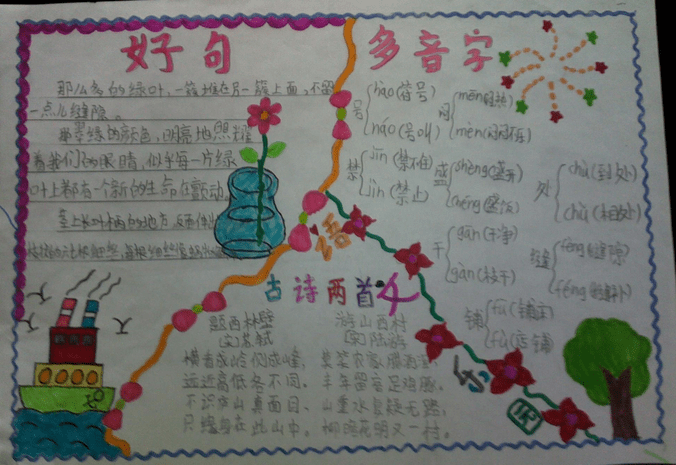 好句
那么多的绿叶，一簇堆在另一簇上面，不留
一点儿缝隙。
翠绿的颜色，明亮地照耀
着我们的眼睛，似乎每一片绿
叶上都有一个新的生命在颤动
多音字
号
hào(符号)
háo(号叫)
闷
mēn(闷热)
mèn(闷闷不乐)
禁
jīn(禁不住)
jìn(禁止)
盛
shèng(盛开)
chéng(盛饭)
处
chù(到处)
chǔ(相处)
干
gān(干净)
gàn(枝干)
缝
fèng(缝隙)
féng(缝补)
铺
pū(铺
pù(店铺
语
文
古诗两首
题西林壁
(宋)苏轼
横看成岭侧成峰，
远近高低各不同。
不识庐山真面目，
只缘身在此山中。
游山西村
(宋)陆游
莫笑农家腊酒浑，
丰年留客足鸡豚。
山重水复疑无路，
柳暗花明又一村。